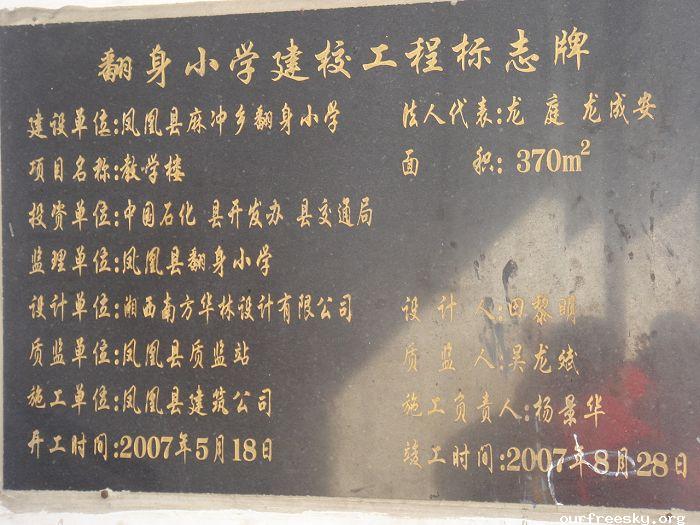 翻身小学建校工程标志牌
建设单位:凤凰县麻冲乡翻身小学 法人代表:龙 庭 龙成安
项目名称:教学楼 面 积: 370m²
投资单位:中国石化 县开发办 县交通局
监理单位:凤凰县翻身小学
设计单位:湘西南方华林设计有限公司 设 计 人:田黎明
质监单位:凤凰县质监站 质 监 人:吴龙斌
施工单位:凤凰县建筑公司 施工负责人:杨景华
开工时间:2007年5月18日 竣工时间:2007年8月28日
ourfreesky.org